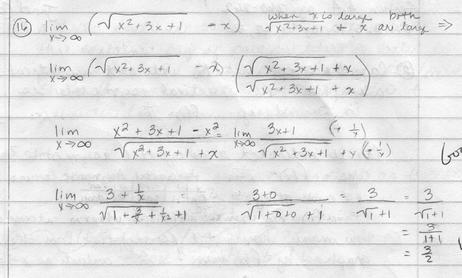 (16) lim x→∞ (√x²+3x+1 - x) when x is large both √x²+3x+1 & x are large ⇒
lim x→∞ (√x²+3x+1 - x) (√x²+3x+1 + x / √x²+3x+1 + x)
lim x→∞ x²+3x+1 - x² / √x²+3x+1 + x = lim x→∞ 3x+1 (÷ 1/x) / √x²+3x+1 + x (÷ 1/x)
lim x→∞ 3 + 1/x / √1 + 3/x + 1/x² + 1 = 3+0 / √1+0+0 + 1 = 3 / √1 + 1 = 3 / √1+1
= 3 / 1+1
= 3/2